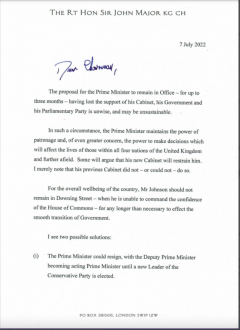 THE RT HON SIR JOHN MAJOR KG CH
7 July 2022
Dear Chairman,
The proposal for the Prime Minister to remain in Office – for up to
three months – having lost the support of his Cabinet, his Government and
his Parliamentary Party is unwise, and may be unsustainable.
In such a circumstance, the Prime Minister maintains the power of
patronage and, of even greater concern, the power to make decisions which
will affect the lives of those within all four nations of the United Kingdom
and further afield. Some will argue that his new Cabinet will restrain him.
I merely note that his previous Cabinet did not – or could not – do so.
For the overall wellbeing of the country, Mr Johnson should not
remain in Downing Street – when he is unable to command the confidence
of the House of Commons – for any longer than necessary to effect the
smooth transition of Government.
I see two possible solutions:
(i) The Prime Minister could resign, with the Deputy Prime Minister
becoming acting Prime Minister until a new Leader of the
Conservative Party is elected.
LONDON SW1P